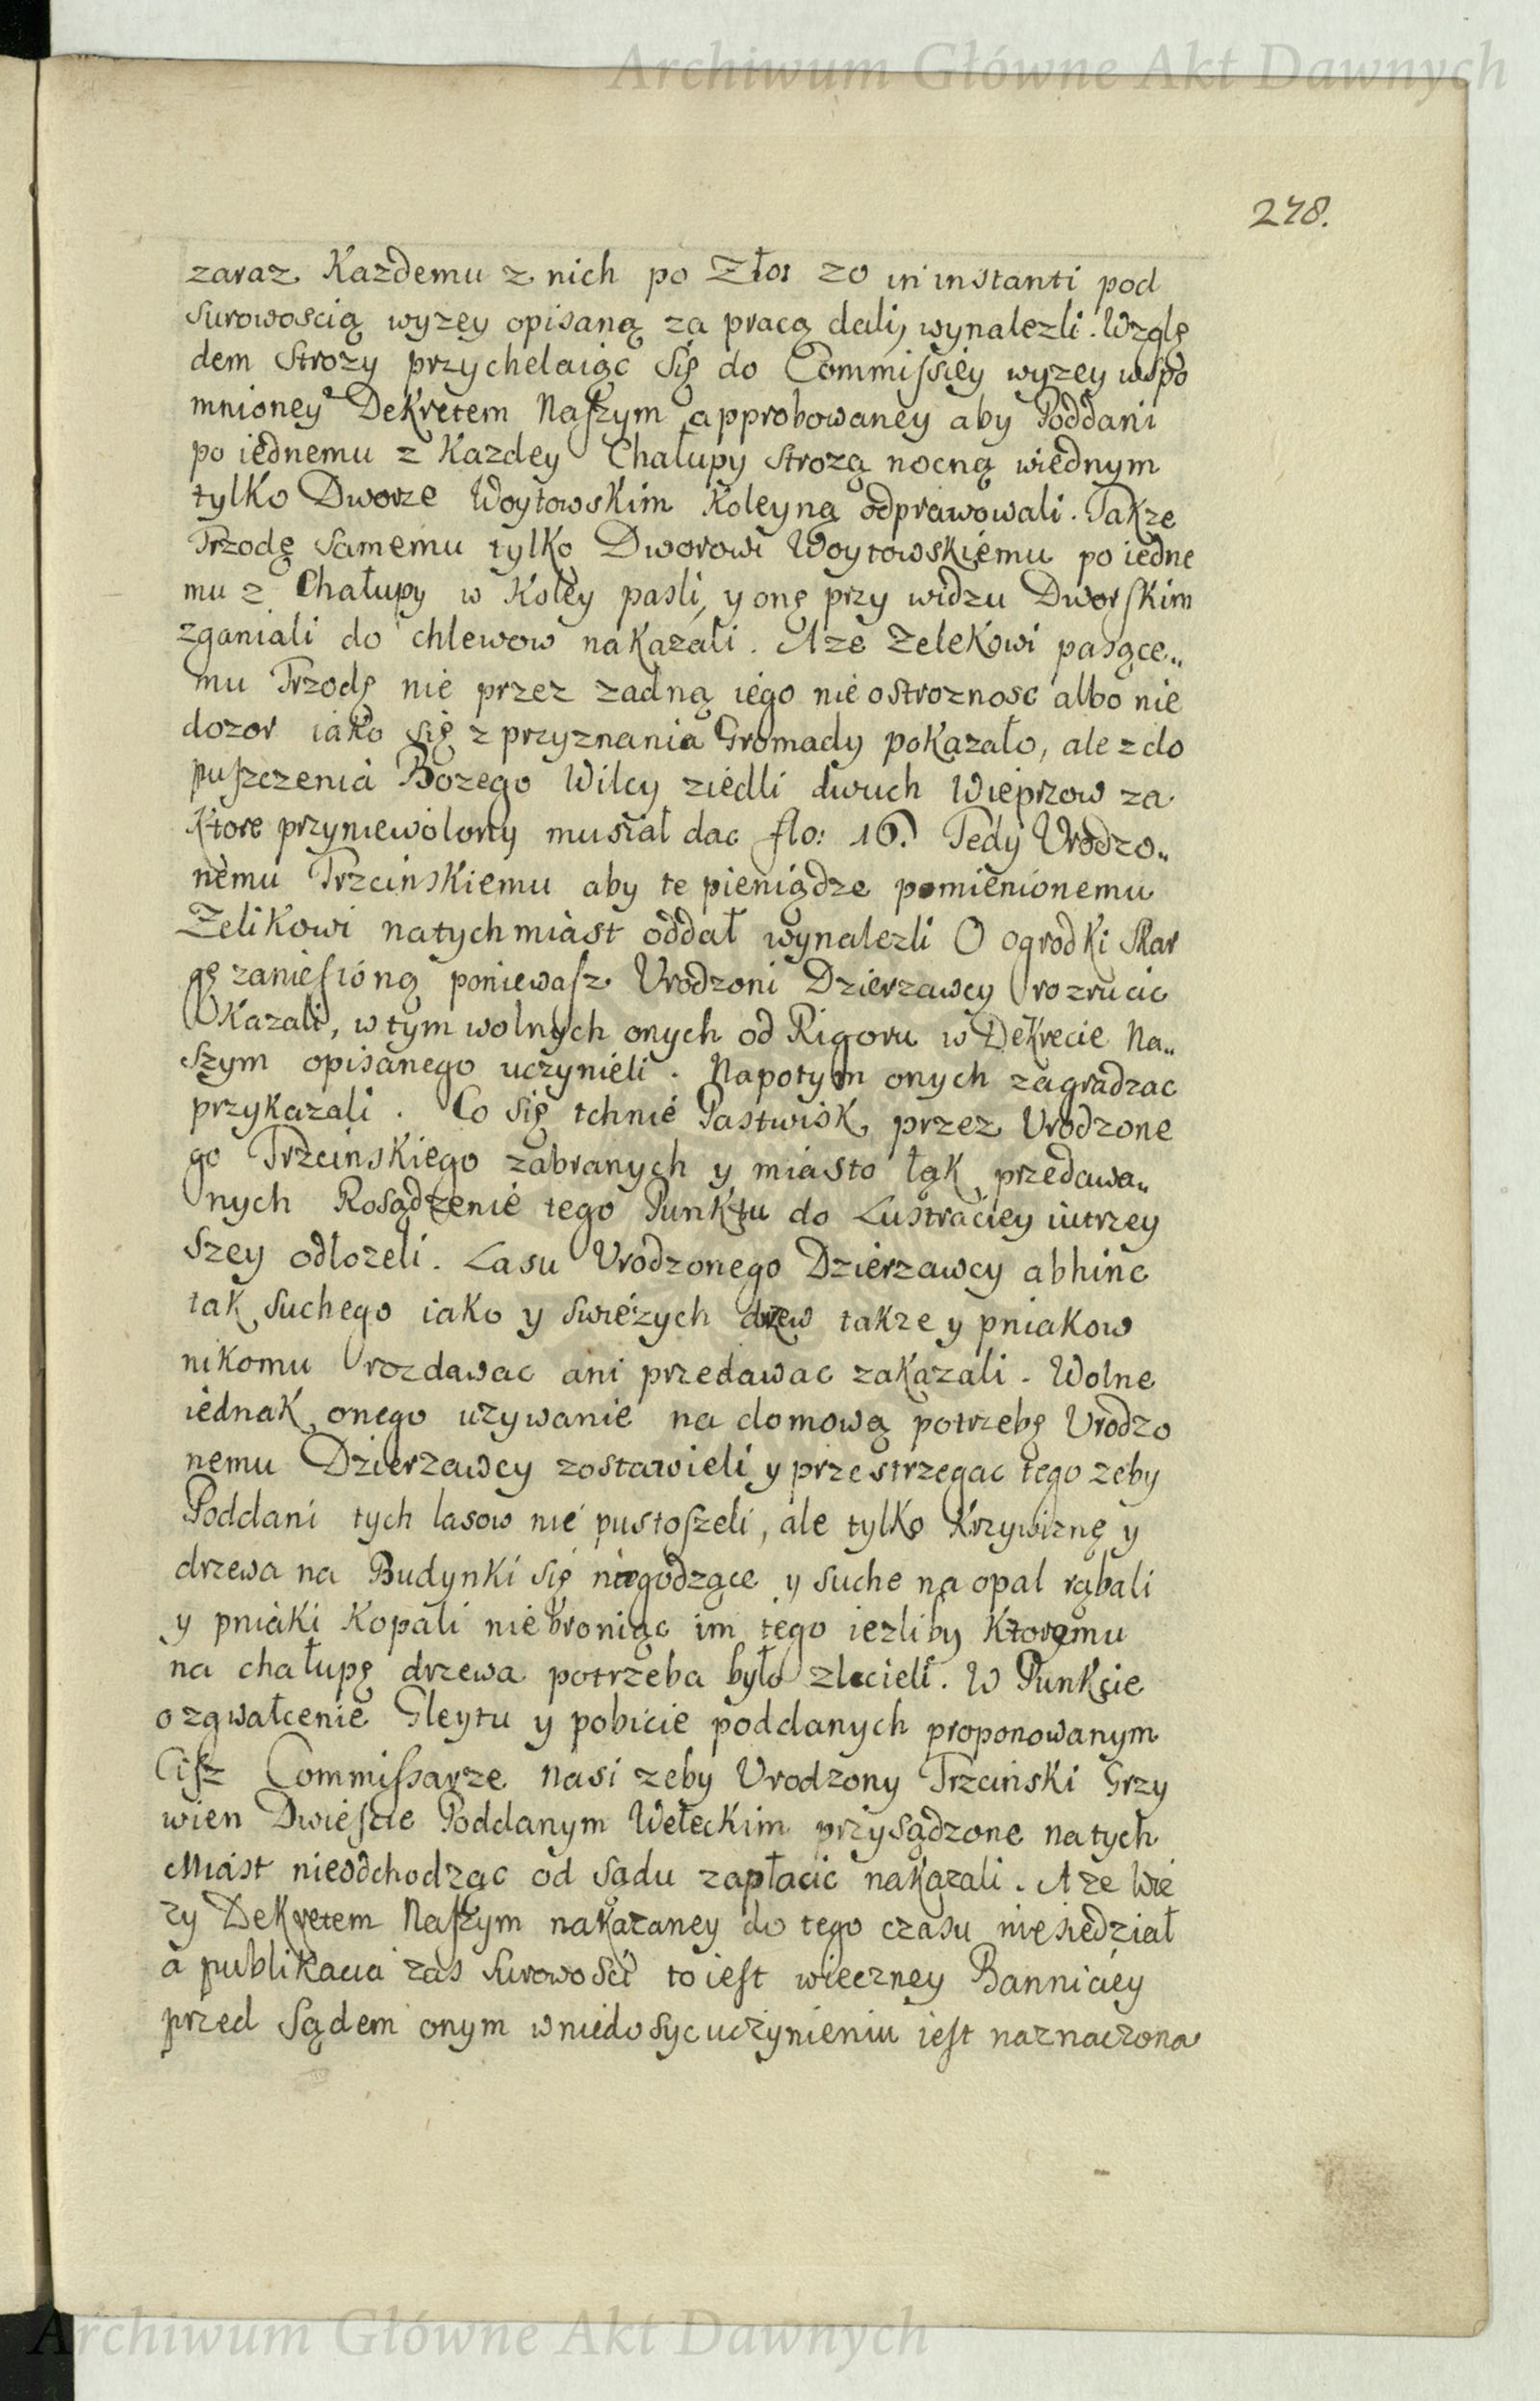 Archiwum Główne Akt Dawnych
278.
zaraz Kazdemu z nich po Złoi 20 in instanti pod
surowoscią wyzey opisaną za pracą dali, wynalezli. Wzglę
dem strozy przychelaiąc się do Commissiey wyzey wspo
mnioney Dekretem Naszym approbowaney aby Poddani
po iednemu z Kazdey Chałupy strozą nocną wiednym
tylko Dworze Woytowskim Koleyną odprawowali. Takze
Trzodę samemu tylko Dworowi Woytowskiemu po iedne
mu z Chałupy w Koley pasli, y onę przy widzu Dworskim
zganiali do chlewow nakazali. A ze Zelekowi pasące„
mu Trzodę nie przez zadną iego nie ostroznosc albo nie
dozor iako się z przyznania Gromady pokazało, ale z do
puszczenia Bozego Wilcy ziedli dwuch Wieprzow za
Ktore przyniewolony musiał dac flo: 16. Tedy Vrodzo„
nemu Trzcinskiemu aby te pieniądze pomienionemu
Zelikowi natychmiast oddał wynalezli O ogrodki Skar
gę zaniesioną poniewasz Vrodzoni Dzierzawcy rozrucic
Kazali, w tym wolnych onych od Rigoru w Dekrecie Na„
szym opisanego uczynieli. Napotym onych zagradzac
przykazali. Co się tchnie Pastwisk, przez Vrodzone
go Trzcinskiego zabranych y miasto łąk przedawa„
nych Rosądzenie tego Punktu do Lustraciey iutrzey
szey odlozeli. Lasu Vrodzonego Dzierzawcy abhinc
tak suchego iako y swiezych drzew takze y pniakow
nikomu rozdawac ani przedawac zakazali. Wolne
iednak onego uzywanie na domową potrzebę Vrodzo
nemu Dzierzawcy zostawieli y przestrzegac tego zeby
Poddani tych lasow nie pustoszeli, ale tylko Krzywiznę y
drzewa na Budynki się niegodzące y suche na opal rąbali
y pniaki Kopali niebroniąc im tego iezliby Ktoremu
na chałupę drzewa potrzeba było zlecieli. W Punkcie
o zgwałcenie Gleytu y pobicie poddanych proponowanym
Cisz Commissarze Nasi zeby Vrodzony Trzcinski Grzy
wien Dwiescie Poddanym Wełeckim przysądzone natych
Miast nieodchodząc od sądu zapłacic nakazali. A ze Wie
zy Dekretem Naszym nakazaney do tego czasu niesiedział
a publikacia zas surowosci toiest wieczney Banniciey
przed sądem onym wniedosycuczynieniu iest naznaczona
Archiwum Główne Akt Dawnych